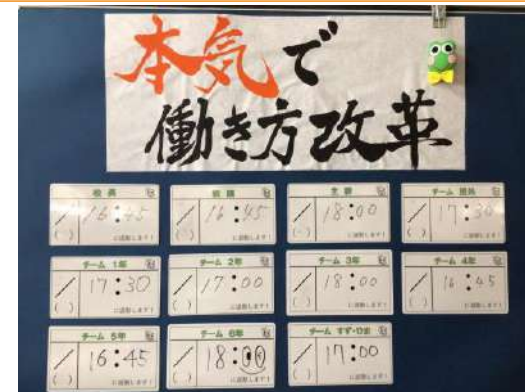 本気で
働き方改革
校長
16:45
に退勤します!
教頭
16:45
に退勤します!
主幹
18:00
に退勤します!
チーム 担外
17:30
に退勤します!
チーム 1年
17:30
に退勤します!
チーム 2年
17:00
に退勤します!
チーム 3年
18:00
に退勤します!
チーム 4年
16:45
に退勤します!
チーム 5年
16:45
に退勤します!
チーム 6年
18:00
に退勤します!
チーム すず・ひま
17:00
に退勤します!